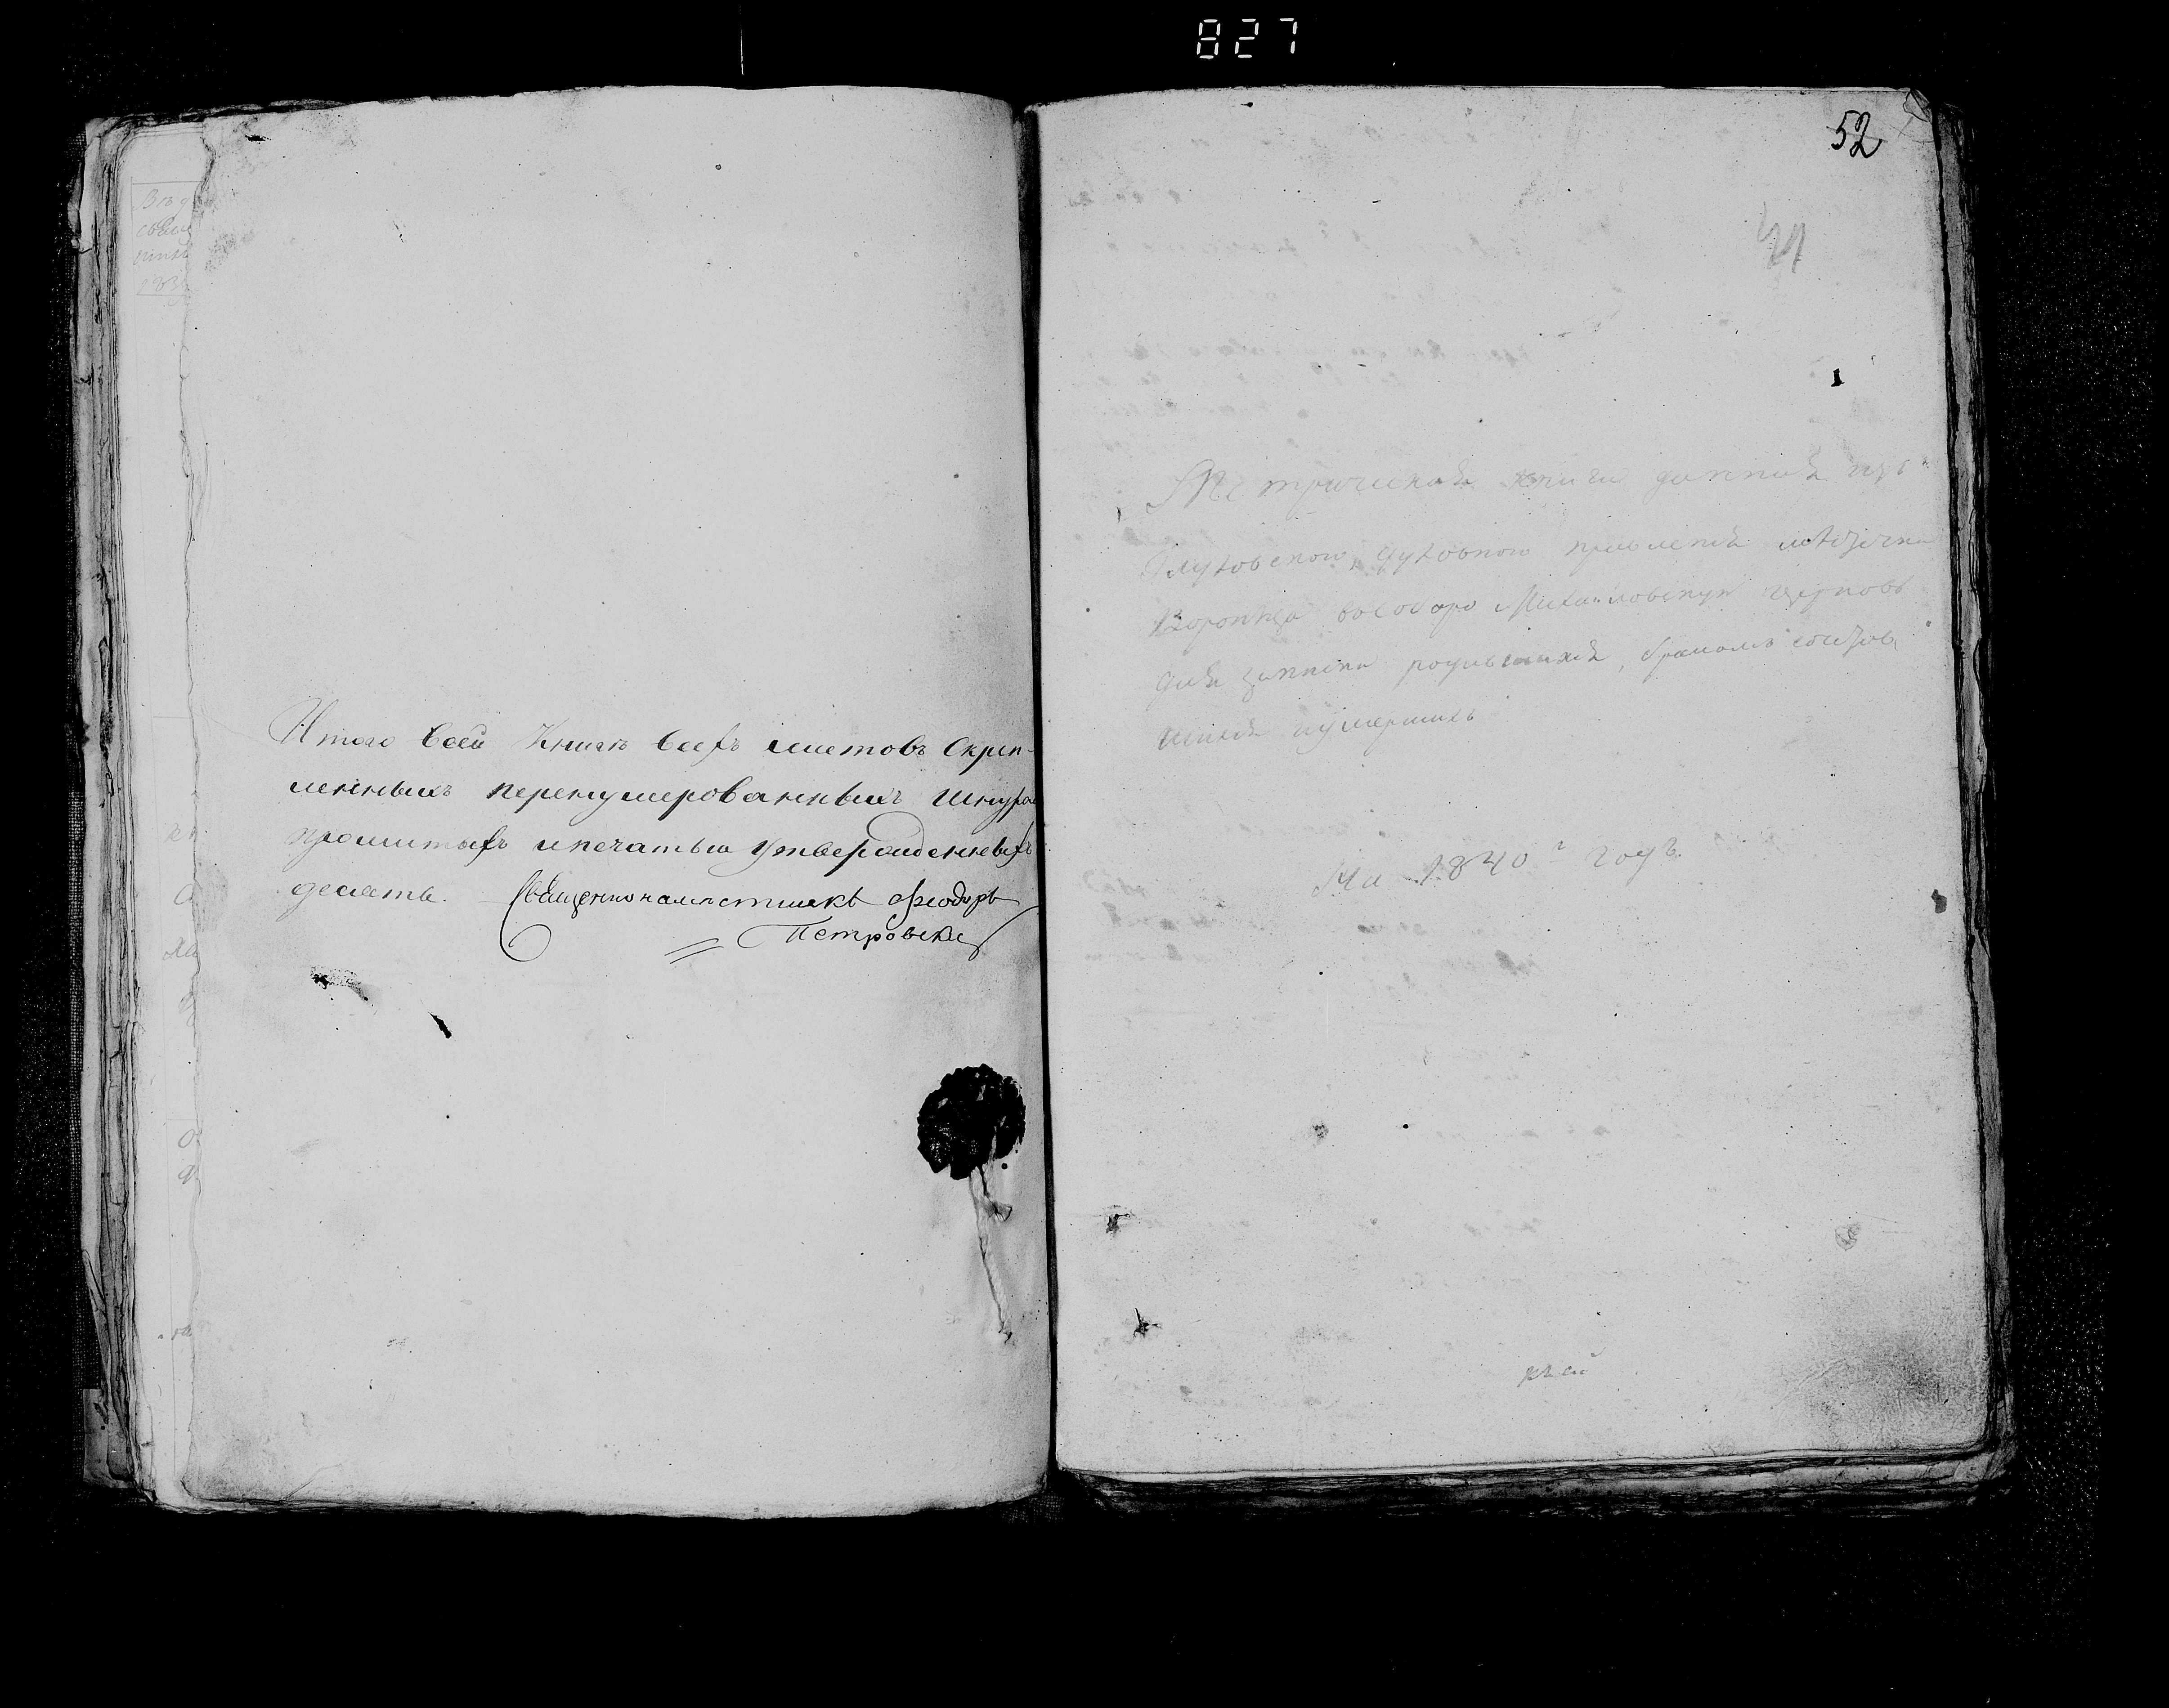 827
Итого Всей Книги всехъ листовъ Скреп-
ленныхъ перенумерованныхъ Шнуром
прошитыхъ ипечатью утвержденныхъ
десять. Священнонаместникъ Феодоръ
Петровски
52
Метрическая книга данная изъ
Глуховского духовного правления местечка
Воронежа вособоро Михайловскую церковь
для записки родившихся, бракомъ сочетав
шихся иумершихъ
На 1840 г годъ.